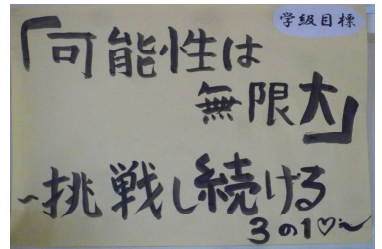 学級目標
「可能性は
無限大」
~挑戦し続ける
3の1♡~